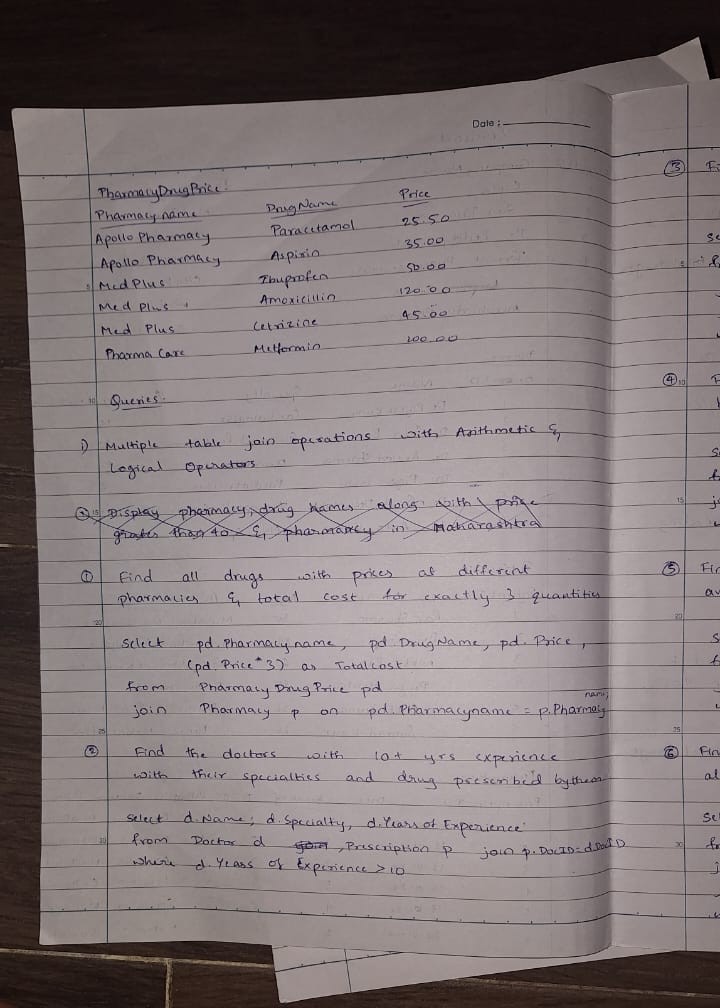 Date :
PharmacyDrugPrice :
Pharmacy name DrugName Price
Apollo Pharmacy Paracetamol 25.50
Apollo Pharmacy Aspirin 35.00
5 Med Plus Ibuprofen 50.00
Med Plus Amoxicillin 120.00
Med Plus Cetrizine 45.00
Pharma Care Metformin 200.00
10 Queries:
1) Multiple table join operations with Arithmetic &
Logical Operators
① 15 Display pharmacy, drug names along with price
greater than 40 & pharmamcy in Maharashtra
① Find all drugs with prices at different
pharmacies & total cost for exactly 3 quantities
20
Select pd. Pharmacy name, pd. DrugName, pd. Price,
(pd. Price * 3) as Totalcost
from Pharmacy Drug Price pd
join Pharmacy p on pd. Pharmacyname = p.Pharmacy
name;
25
② Find the doctors with 10+ yrs experience
with their specialties and drug prescribed by them
Select d. Name, d. Specialty, d. Years of Experience
30 from Doctor d join , Prescription p join p. DocID = d.DocID
where d. Years of Experience > 10
③ Fi
Se
5 f
④ 10 F
S
f
15 j
⑤ Fin
av
20
S
f
25
⑥ Fin
al
Se
30 fr
j